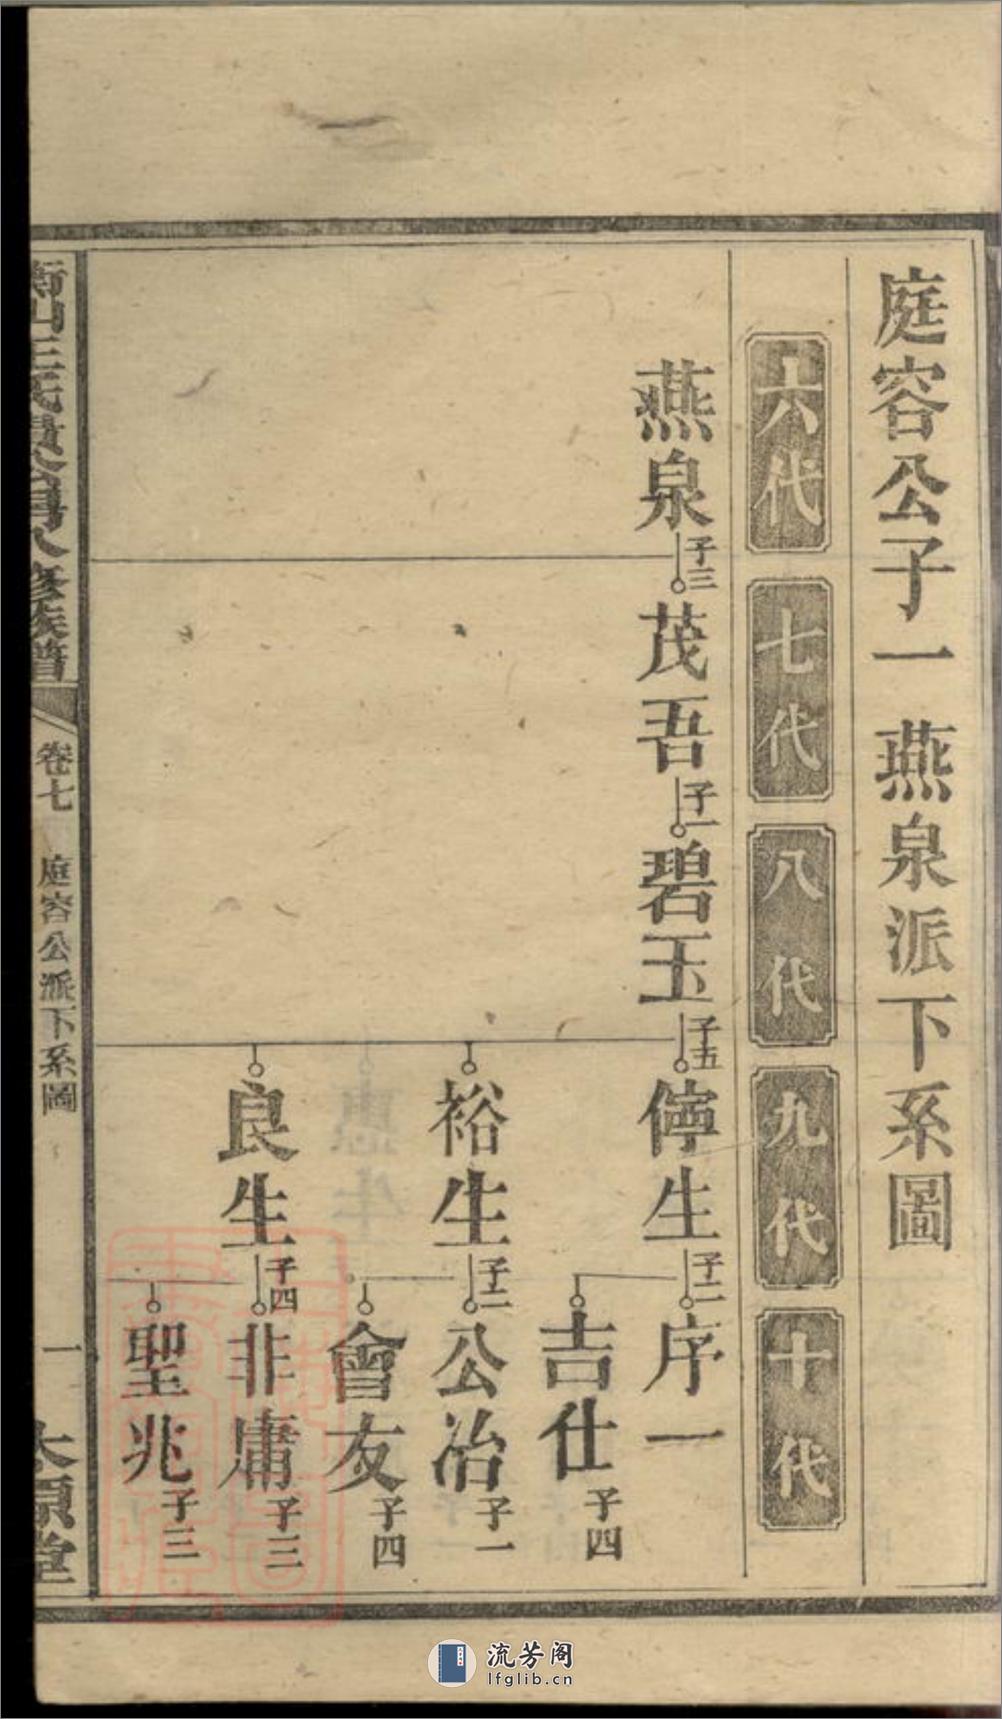 庭容公子一 燕泉派下系圖
六代
七代
八代
九代
十代
燕泉
子三
茂吾
子一
碧玉
子五
儜生
子二
序一
吉仕
子四
裕生
子二
公冶
子一
會友
子四
良生
子四
非庸
子三
聖兆
子三
衡山王氏貴公房八修族譜
卷七
庭容公派下系圖
一
太原堂
流芳阁
lfglib.cn